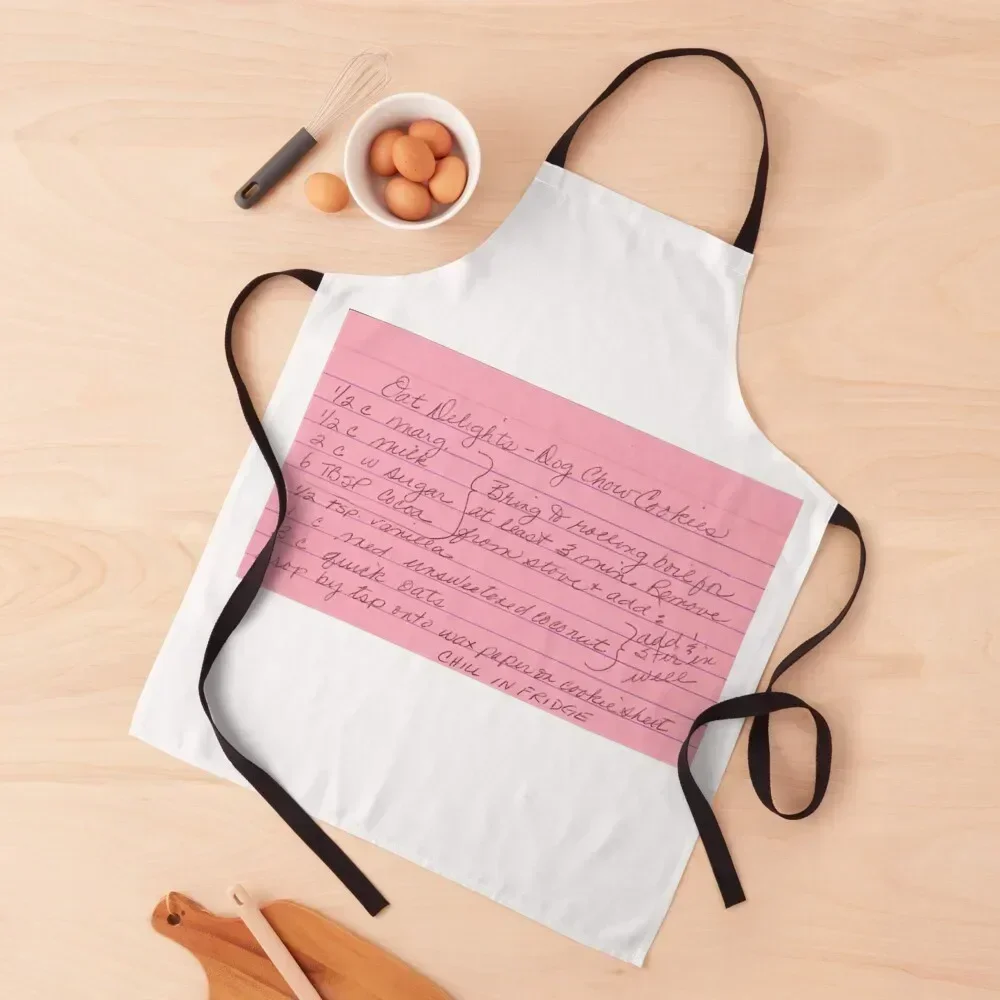 Oat Delights - Dog Chow Cookies
1/2 c marg.
1/2 c milk
2 c w sugar
6 TBSP cocoa
Bring to rolling boil for
at least 3 mins. Remove
from stove & add:
1/2 tsp vanilla
c med unsweetened coconut
c quick oats
add &
stir in
well
drop by tsp onto wax paper on cookie sheet
CHILL IN FRIDGE